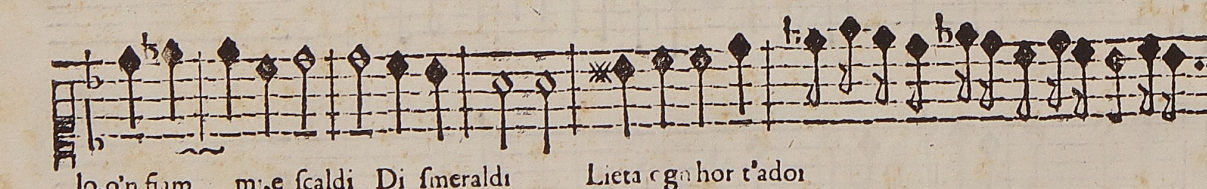 lo o'n fiam mi,e ſcaldi Di ſmeraldi Lieta ogn hor t'ador